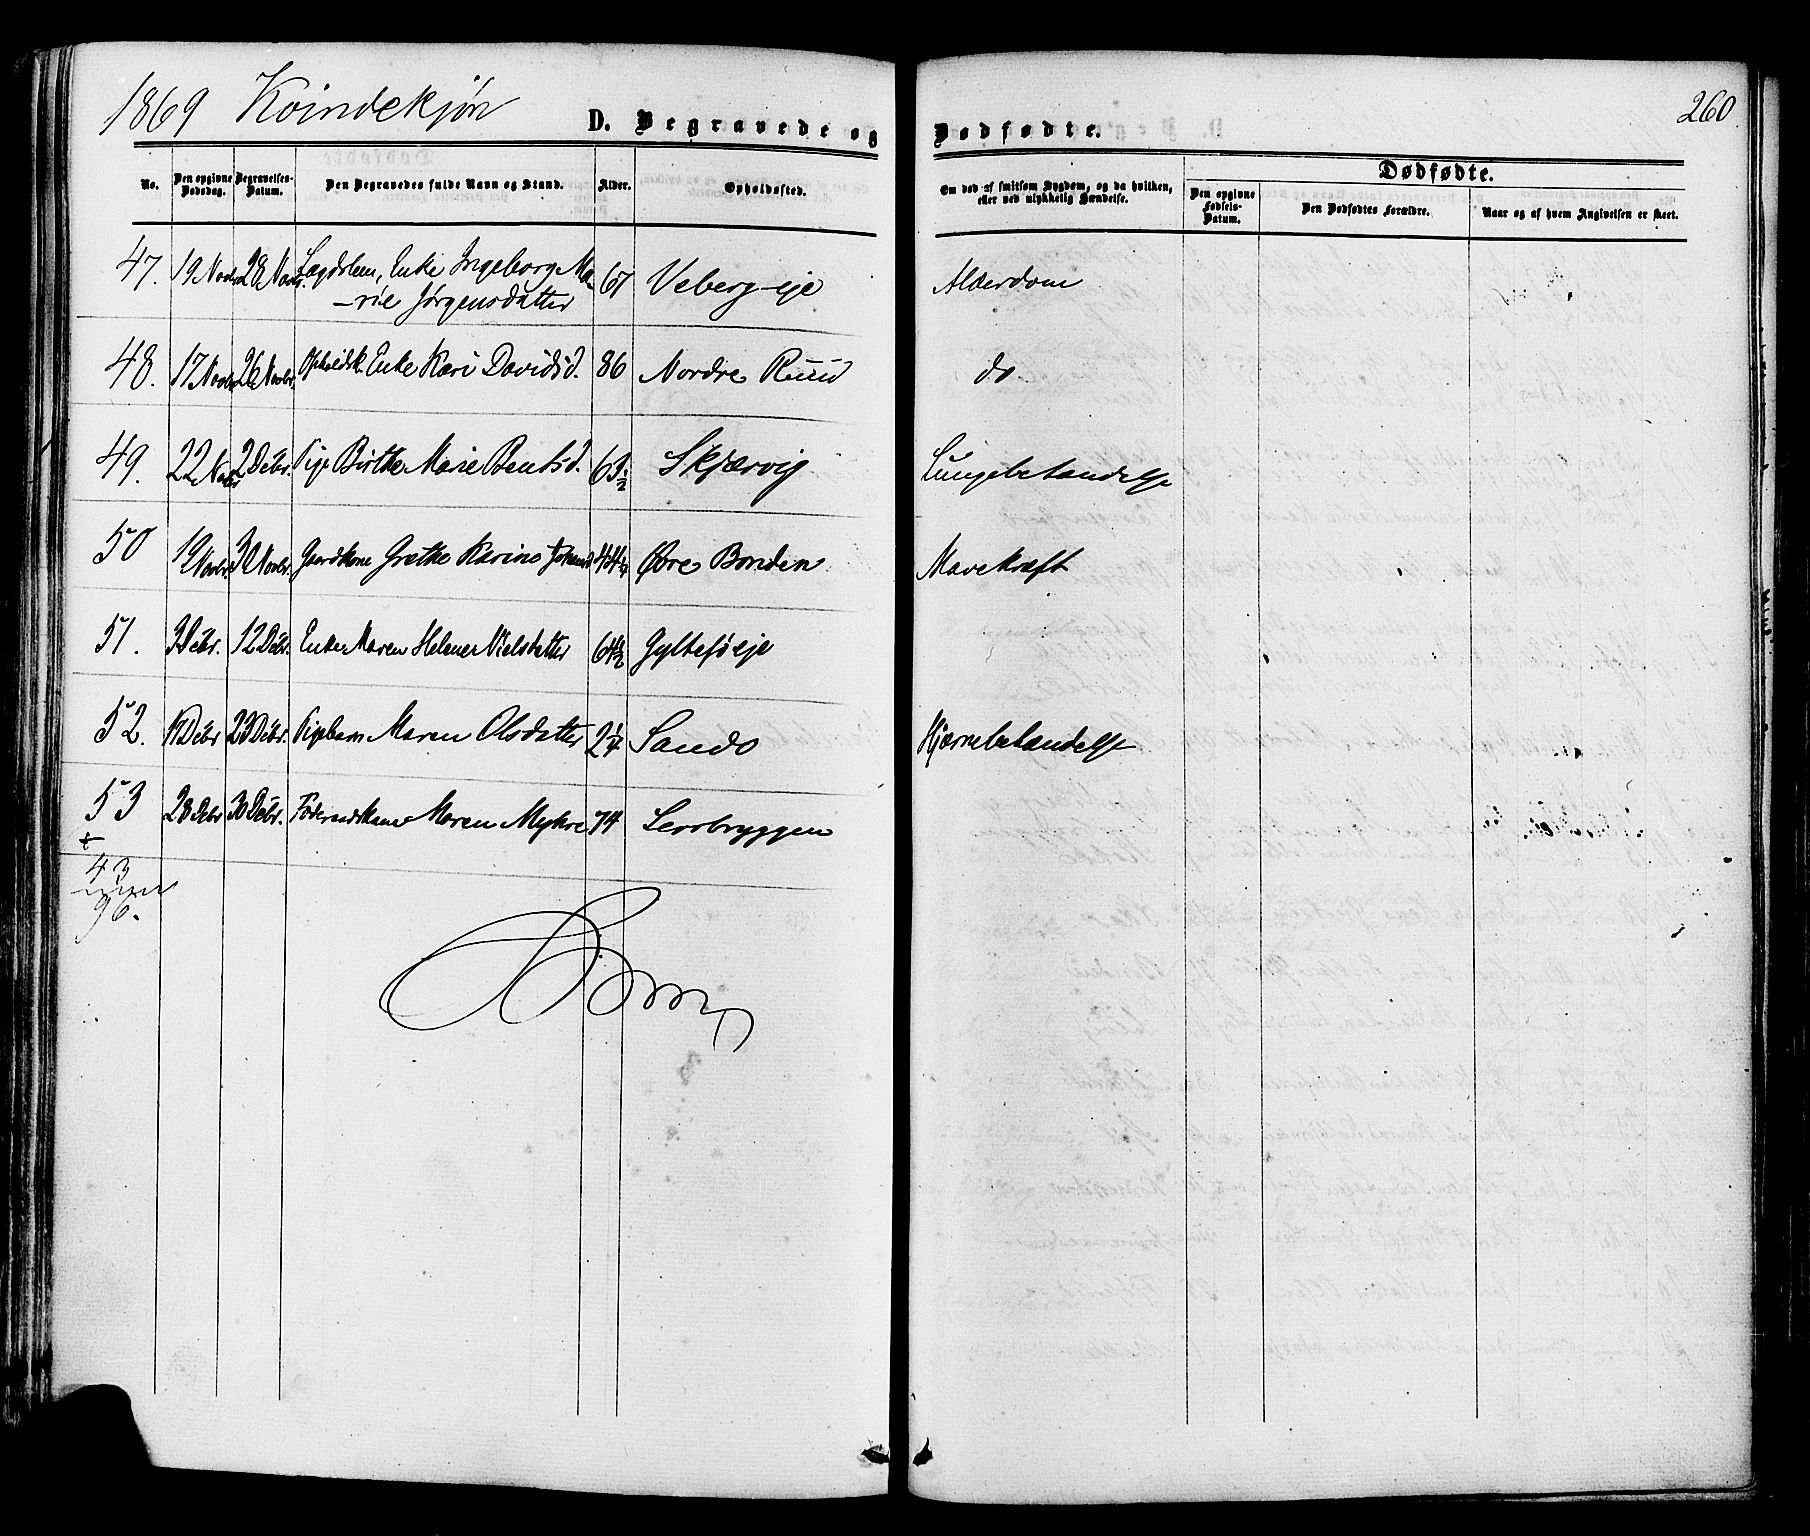 1869 Kvindekjøn
D. Begravede og Dødfødte.
260
No. Den opgivne Dødsdag. Begravelses-Datum. Den Begravedes fulde Navn og Stand. Alder. Opholdssted. Om død af smitsom Sygdom, og da hvilken, eller ved ulykkelig Hændelse.
Dødfødte.
Den opgivne Fødsels-Datum. Den Dødfødtes Forældre. Naar og af hvem Angivelsen er skeet.
47. 19 Novbr 28 Novbr. Lægdslem, Enke Ingeborg Ma- 67 Veberg-eje Alderdom
-rie Jørgensdatter
48. 17 Novbr 26 Novbr. Opholdsk. Enke Kari Davidsd. 86 Nordre Ruud do
49. 22 Novbr 2 Debr. Pige Birthe Marie Bentsd. 63 1/2 Skjærvig Lungebetændelse
50 19 Novbr 30 Novbr. Gaardkone Grethe Karine Johansd 44 1/4 Øvre Bonden Mavekræft
51. 3 Debr. 12 Debr. Enke Maren Helene Nielsdatter 64 1/2 Gylteføeje
52. 17 Debr 23 Debr. Pigebarn Maren Olsdatter 2 1/4 Sando Hjærnebetændelse
53 28 Debr 30 Debr. Føderaadskone Maren Mykre 74 Lersbryggen
+
43
96.